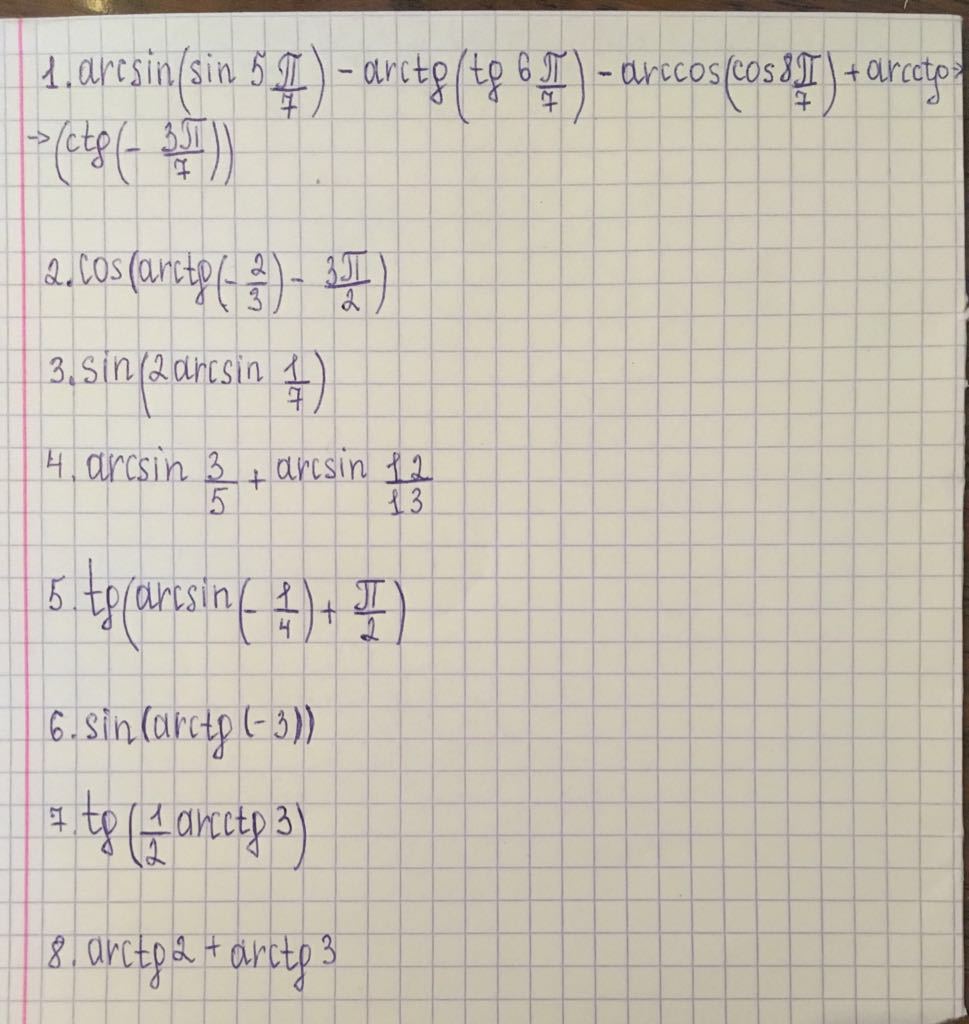 1. arcsin(sin 5 π/7) - arctg(tg 6 π/7) - arccos(cos 8π/7) + arcctg→
→(ctg(- 3π/7))
2. cos(arctg(- 2/3) - 3π/2)
3. sin(2 arcsin 1/7)
4. arcsin 3/5 + arcsin 12/13
5. tg(arcsin(- 1/4) + π/2)
6. sin(arctg(-3))
7. tg(1/2 arcctg 3)
8. arctg 2 + arctg 3